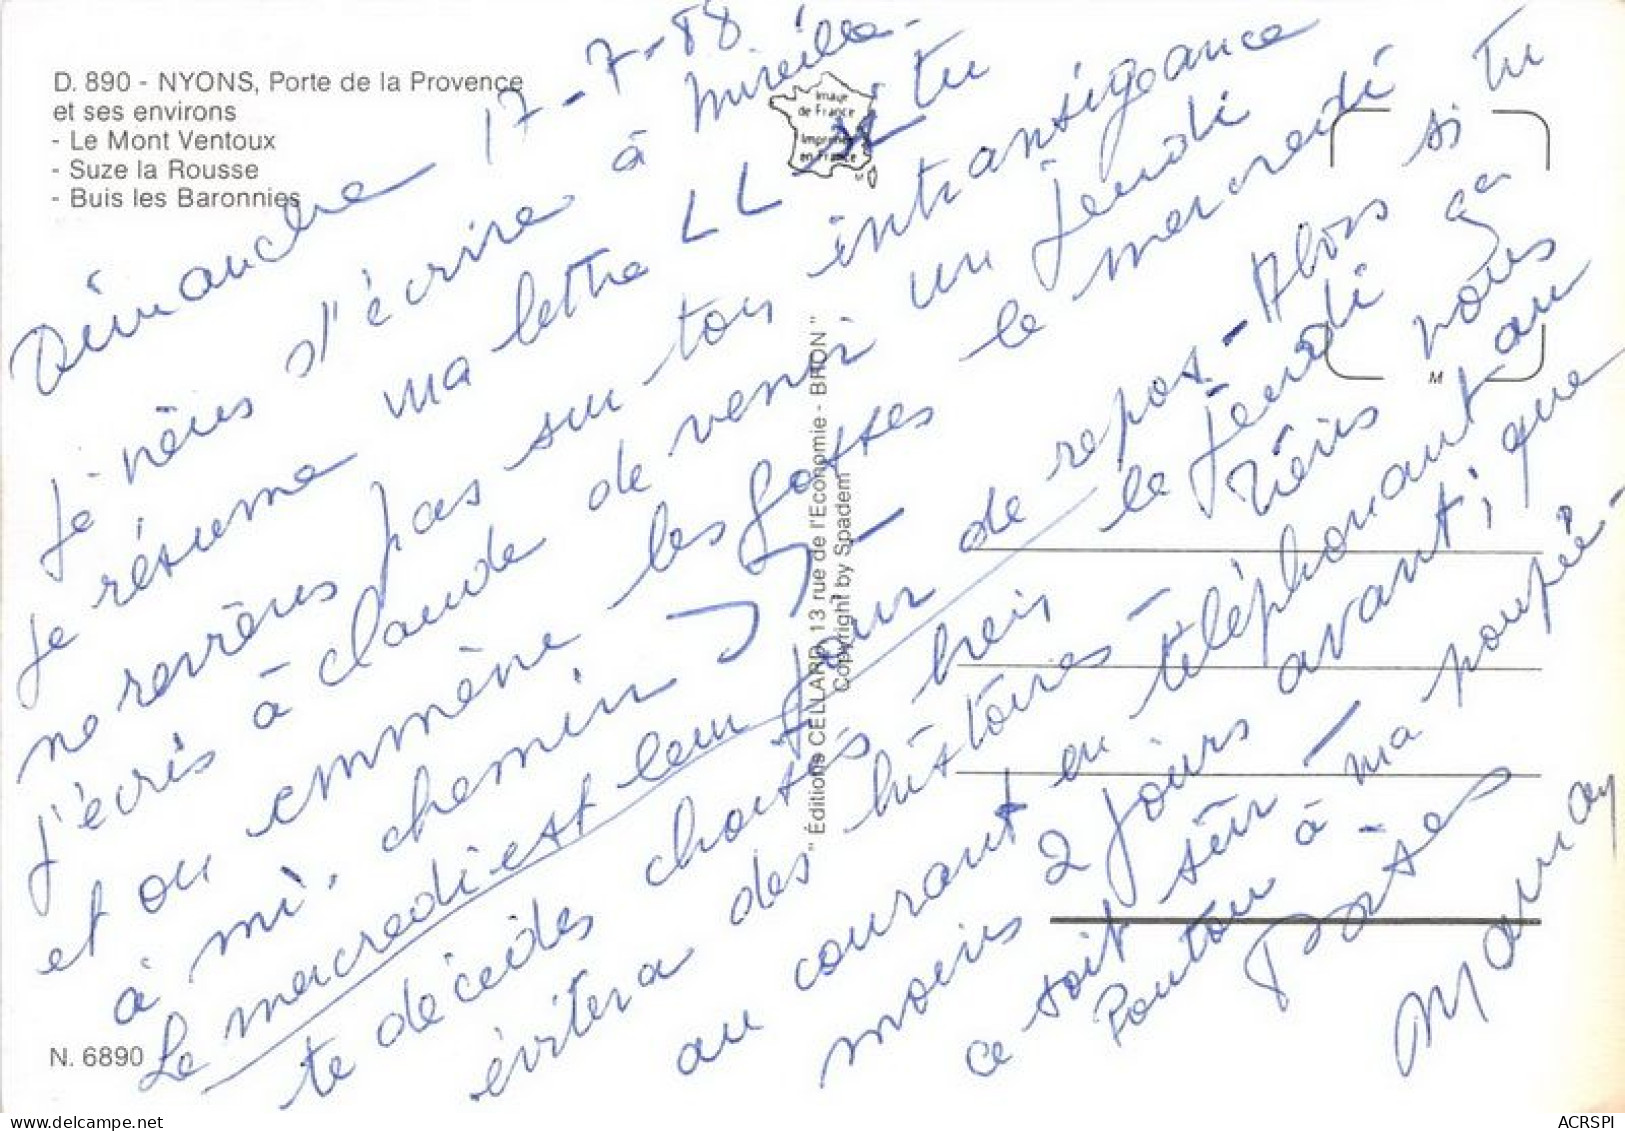 D. 890 - NYONS, Porte de la Provence
et ses environs
- Le Mont Ventoux
- Suze la Rousse
- Buis les Baronnies
Image
de France
Imprimé
en France
Dimanche 17-7-88
Je viens d'écrire à Mireille -
Je résume ma lettre LL si tu
ne reviens pas sur ton intransigeance
j'écris à Claude de venir un Jeudi
et on emmène les gosses le mercredi
à mi. chemin
Le mercredi est leur jour de repos - Alors si tu
te décides choisis bien le Jeudi ça
évitera des histoires - Tiens nous
au courant en téléphonant au
moins 2 jours avant, que
ce soit sûr -
Pontou à ma poupée -
Bises
Mamay
M
"Éditions CELLARD, 13 rue de l'Economie - BRON"
Copyright by Spadem
N. 6890
ACRSPI